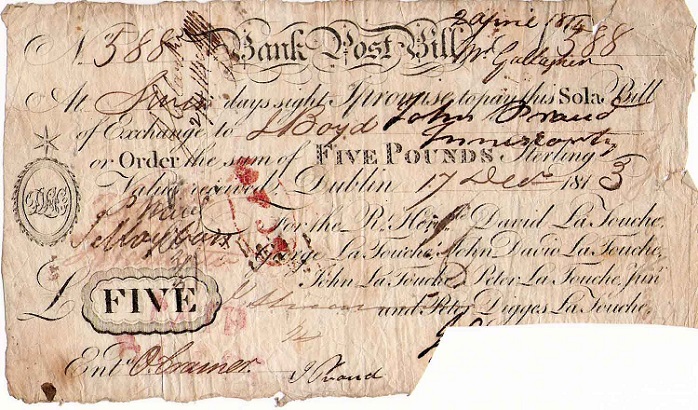 2 April 1814
No. 588 Bank Post Bill 588
Mr. Gallagher
At days sight I promise to pay this Sola Bill
of Exchange to J Boyd John Proud
or Order the sum of FIVE POUNDS Sterling
Value received, Dublin 17 Decr 1813
For the Rt. Honble. David La Touche,
George La Touche, John David La Touche,
John La Touche, Peter La Touche, Junr.
£ FIVE and Peter Digges La Touche,
Entd. O. Cramer.
J Proud